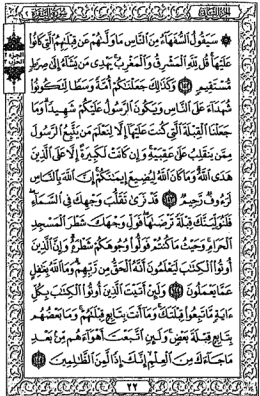 سَيَقُولُ السُّفَهَاءُ مِنَ النَّاسِ مَا وَلَّاهُمْ عَن قِبْلَتِهِمُ الَّتِي كَانُوا
عَلَيْهَا قُل لِّلَّهِ الْمَشْرِقُ وَالْمَغْرِبُ يَهْدِي مَن يَشَاءُ إِلَى صِرَاطٍ
مُّسْتَقِيمٍ ١٤٢ وَكَذَٰلِكَ جَعَلْنَاكُمْ أُمَّةً وَسَطًا لِّتَكُونُوا
شُهَدَاءَ عَلَى النَّاسِ وَيَكُونَ الرَّسُولُ عَلَيْكُمْ شَهِيدًا وَمَا
جَعَلْنَا الْقِبْلَةَ الَّتِي كُنتَ عَلَيْهَا إِلَّا لِنَعْلَمَ مَن يَتَّبِعُ الرَّسُولَ
مِمَّن يَنقَلِبُ عَلَىٰ عَقِبَيْهِ وَإِن كَانَتْ لَكَبِيرَةً إِلَّا عَلَى الَّذِينَ
هَدَى اللَّهُ وَمَا كَانَ اللَّهُ لِيُضِيعَ إِيمَانَكُمْ إِنَّ اللَّهَ بِالنَّاسِ
لَرَءُوفٌ رَّحِيمٌ ١٤٣ قَدْ نَرَىٰ تَقَلُّبَ وَجْهِكَ فِي السَّمَاءِ
فَلَنُوَلِّيَنَّكَ قِبْلَةً تَرْضَاهَا فَوَلِّ وَجْهَكَ شَطْرَ الْمَسْجِدِ
الْحَرَامِ وَحَيْثُ مَا كُنتُمْ فَوَلُّوا وُجُوهَكُمْ شَطْرَهُ وَإِنَّ الَّذِينَ
أُوتُوا الْكِتَابَ لَيَعْلَمُونَ أَنَّهُ الْحَقُّ مِن رَّبِّهِمْ وَمَا اللَّهُ بِغَافِلٍ
عَمَّا يَعْمَلُونَ ١٤٤ وَلَئِنْ أَتَيْتَ الَّذِينَ أُوتُوا الْكِتَابَ بِكُلِّ
ءَايَةٍ مَّا تَبِعُوا قِبْلَتَكَ وَمَا أَنتَ بِتَابِعٍ قِبْلَتَهُمْ وَمَا بَعْضُهُم
بِتَابِعٍ قِبْلَةَ بَعْضٍ وَلَئِنِ اتَّبَعْتَ أَهْوَاءَهُم مِّن بَعْدِ
مَا جَاءَكَ مِنَ الْعِلْمِ إِنَّكَ إِذًا لَّمِنَ الظَّالِمِينَ ١٤٥
٢٢